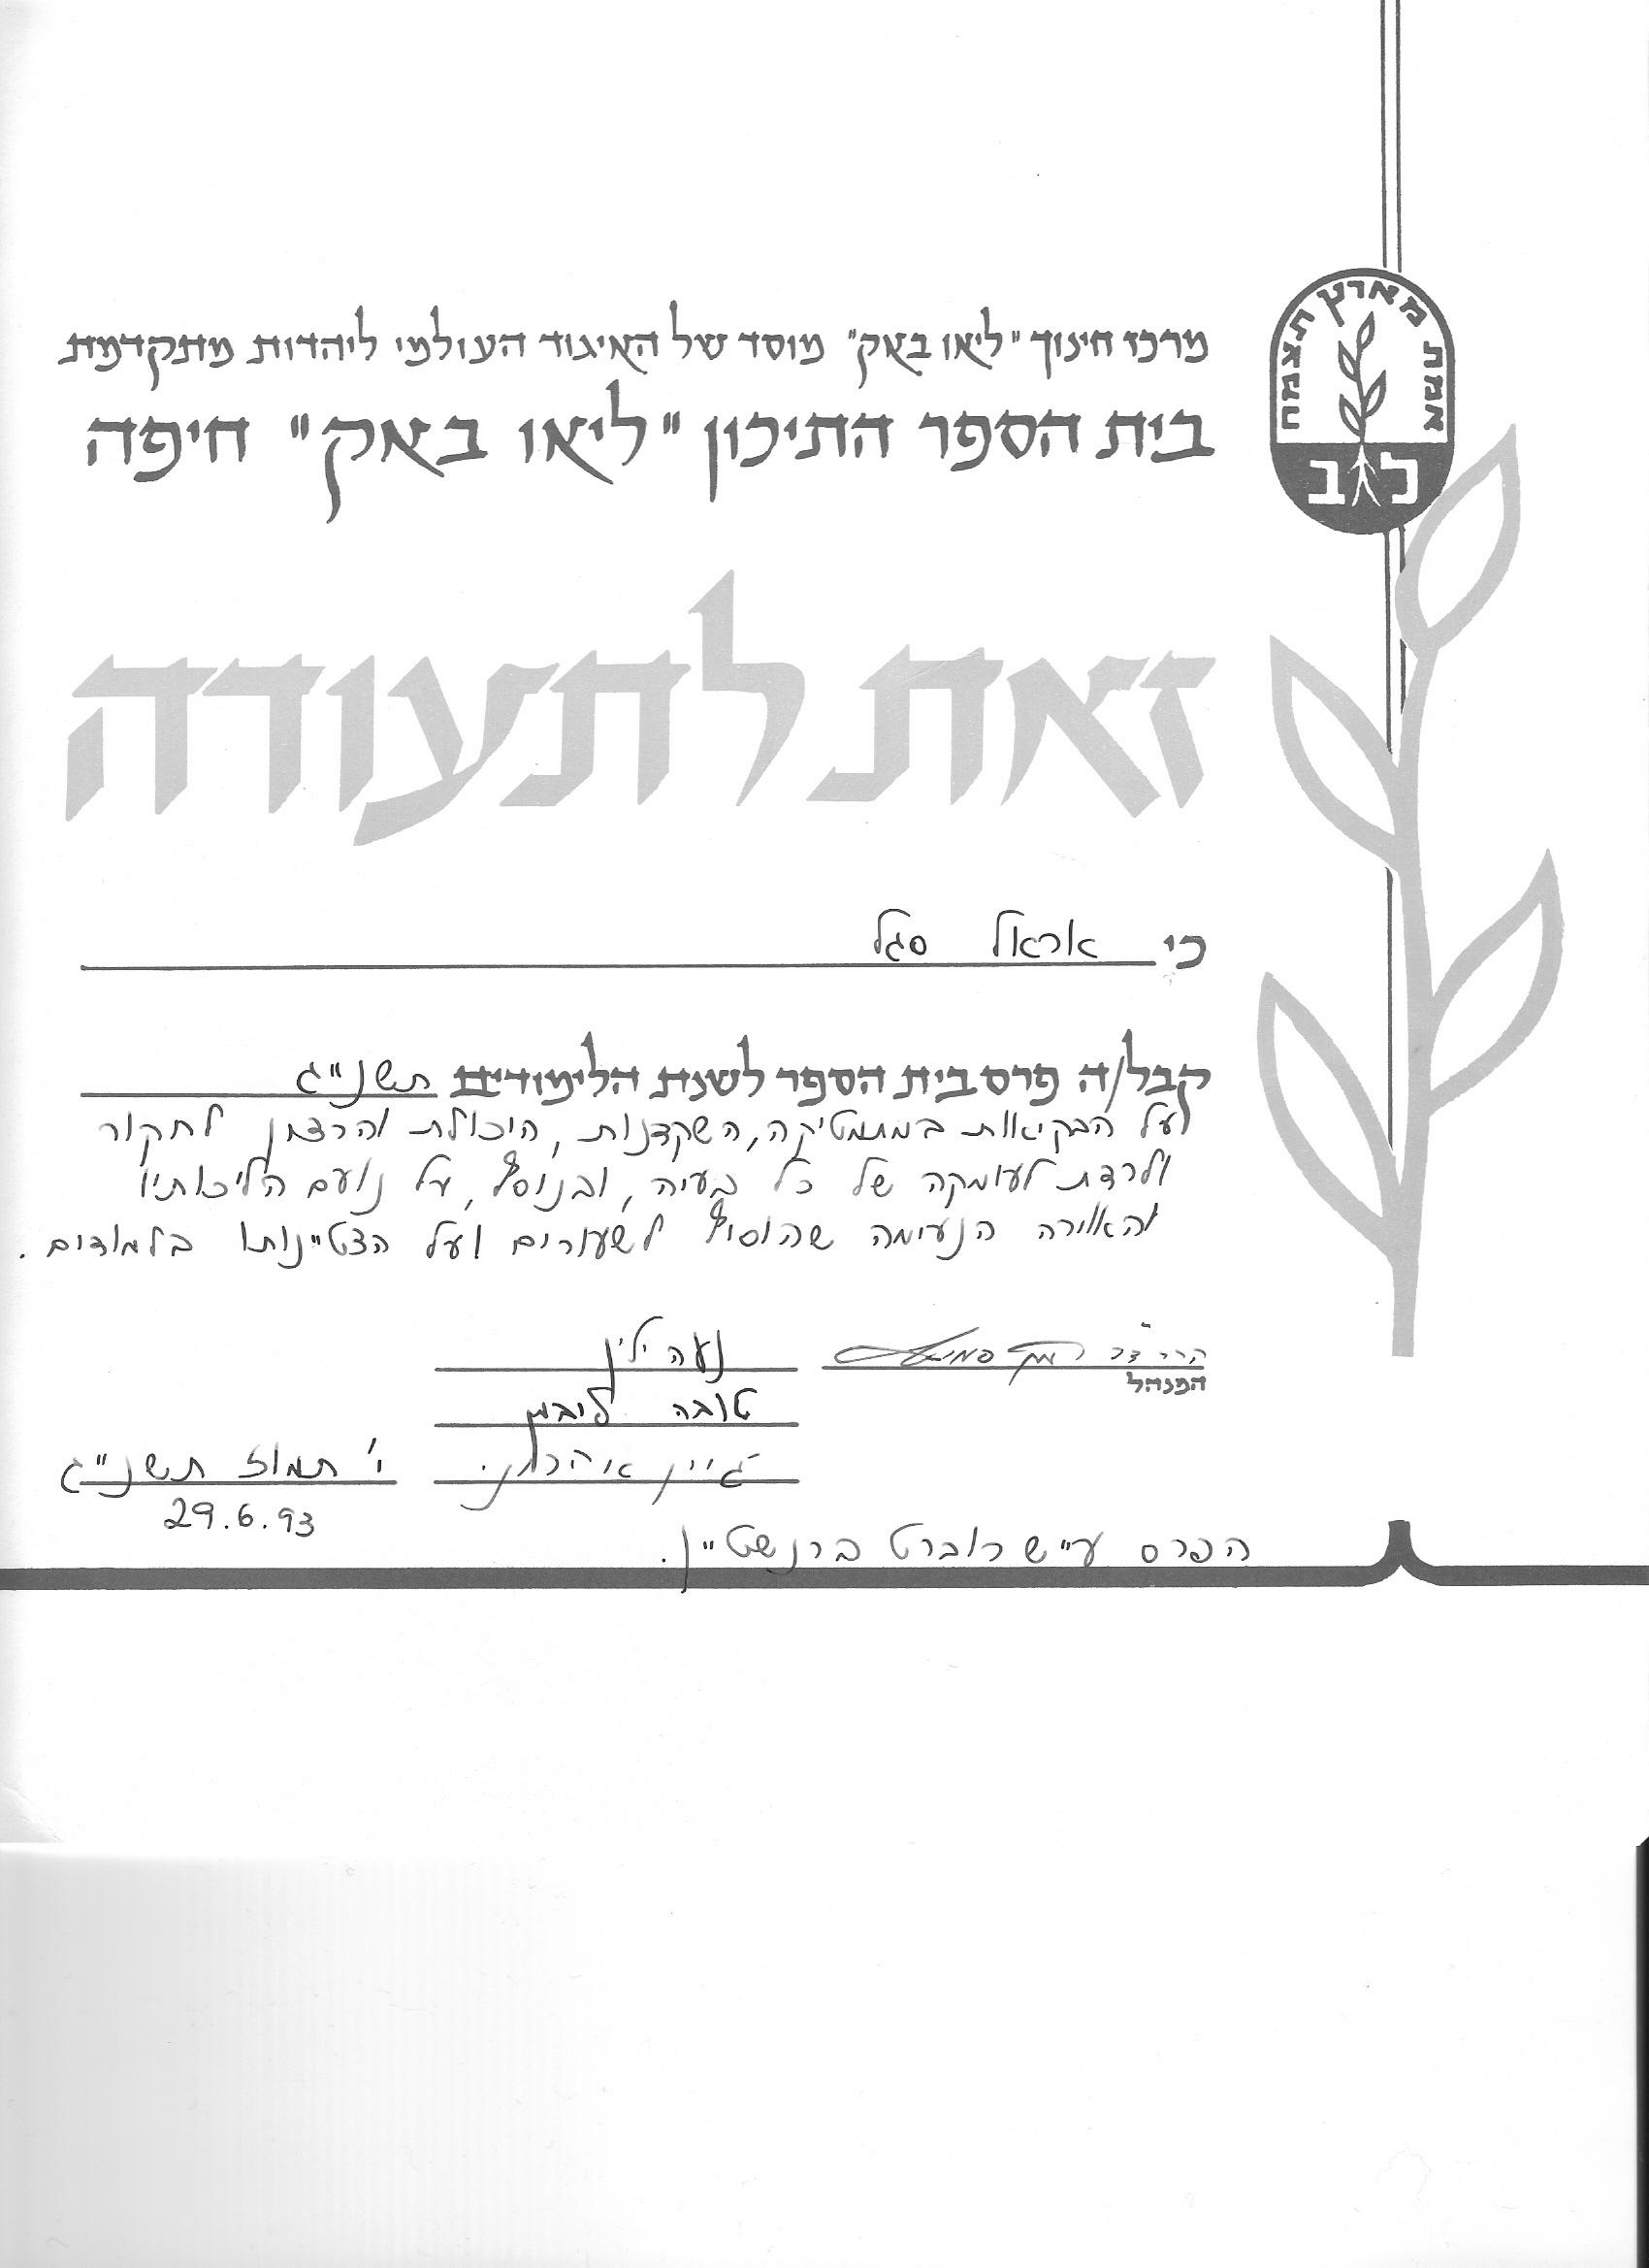 אמת מארץ תצמח
ל ב
מרכז חינוך "ליאו באק" מוסד של האיגוד העולמי ליהדות מתקדמת
בית הספר התיכון "ליאו באק" חיפה
זאת לתעודה
כי אראל סגל
קבל/ה פרס בית הספר לשנת הלימודים תשנ"ג
על הבקיאות במתמטיקה, השקדנות, היכולת והרצון לחקור
ולרדת לעומקה של כל בעיה, ובנוסף, על נועם הליכותיו
והאוירה הנעימה שהוסיף לשעורים ועל הצטיינותו בלמודים.
הרב ד"ר
המנהל
נעה ילין
טובה ליבמן
י' תמוז תשנ"ג
29.6.93
הפרס ע"ש רוברט ברנשטיין.